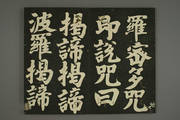 羅蜜多咒
即說咒曰
揭諦揭諦
波羅揭諦